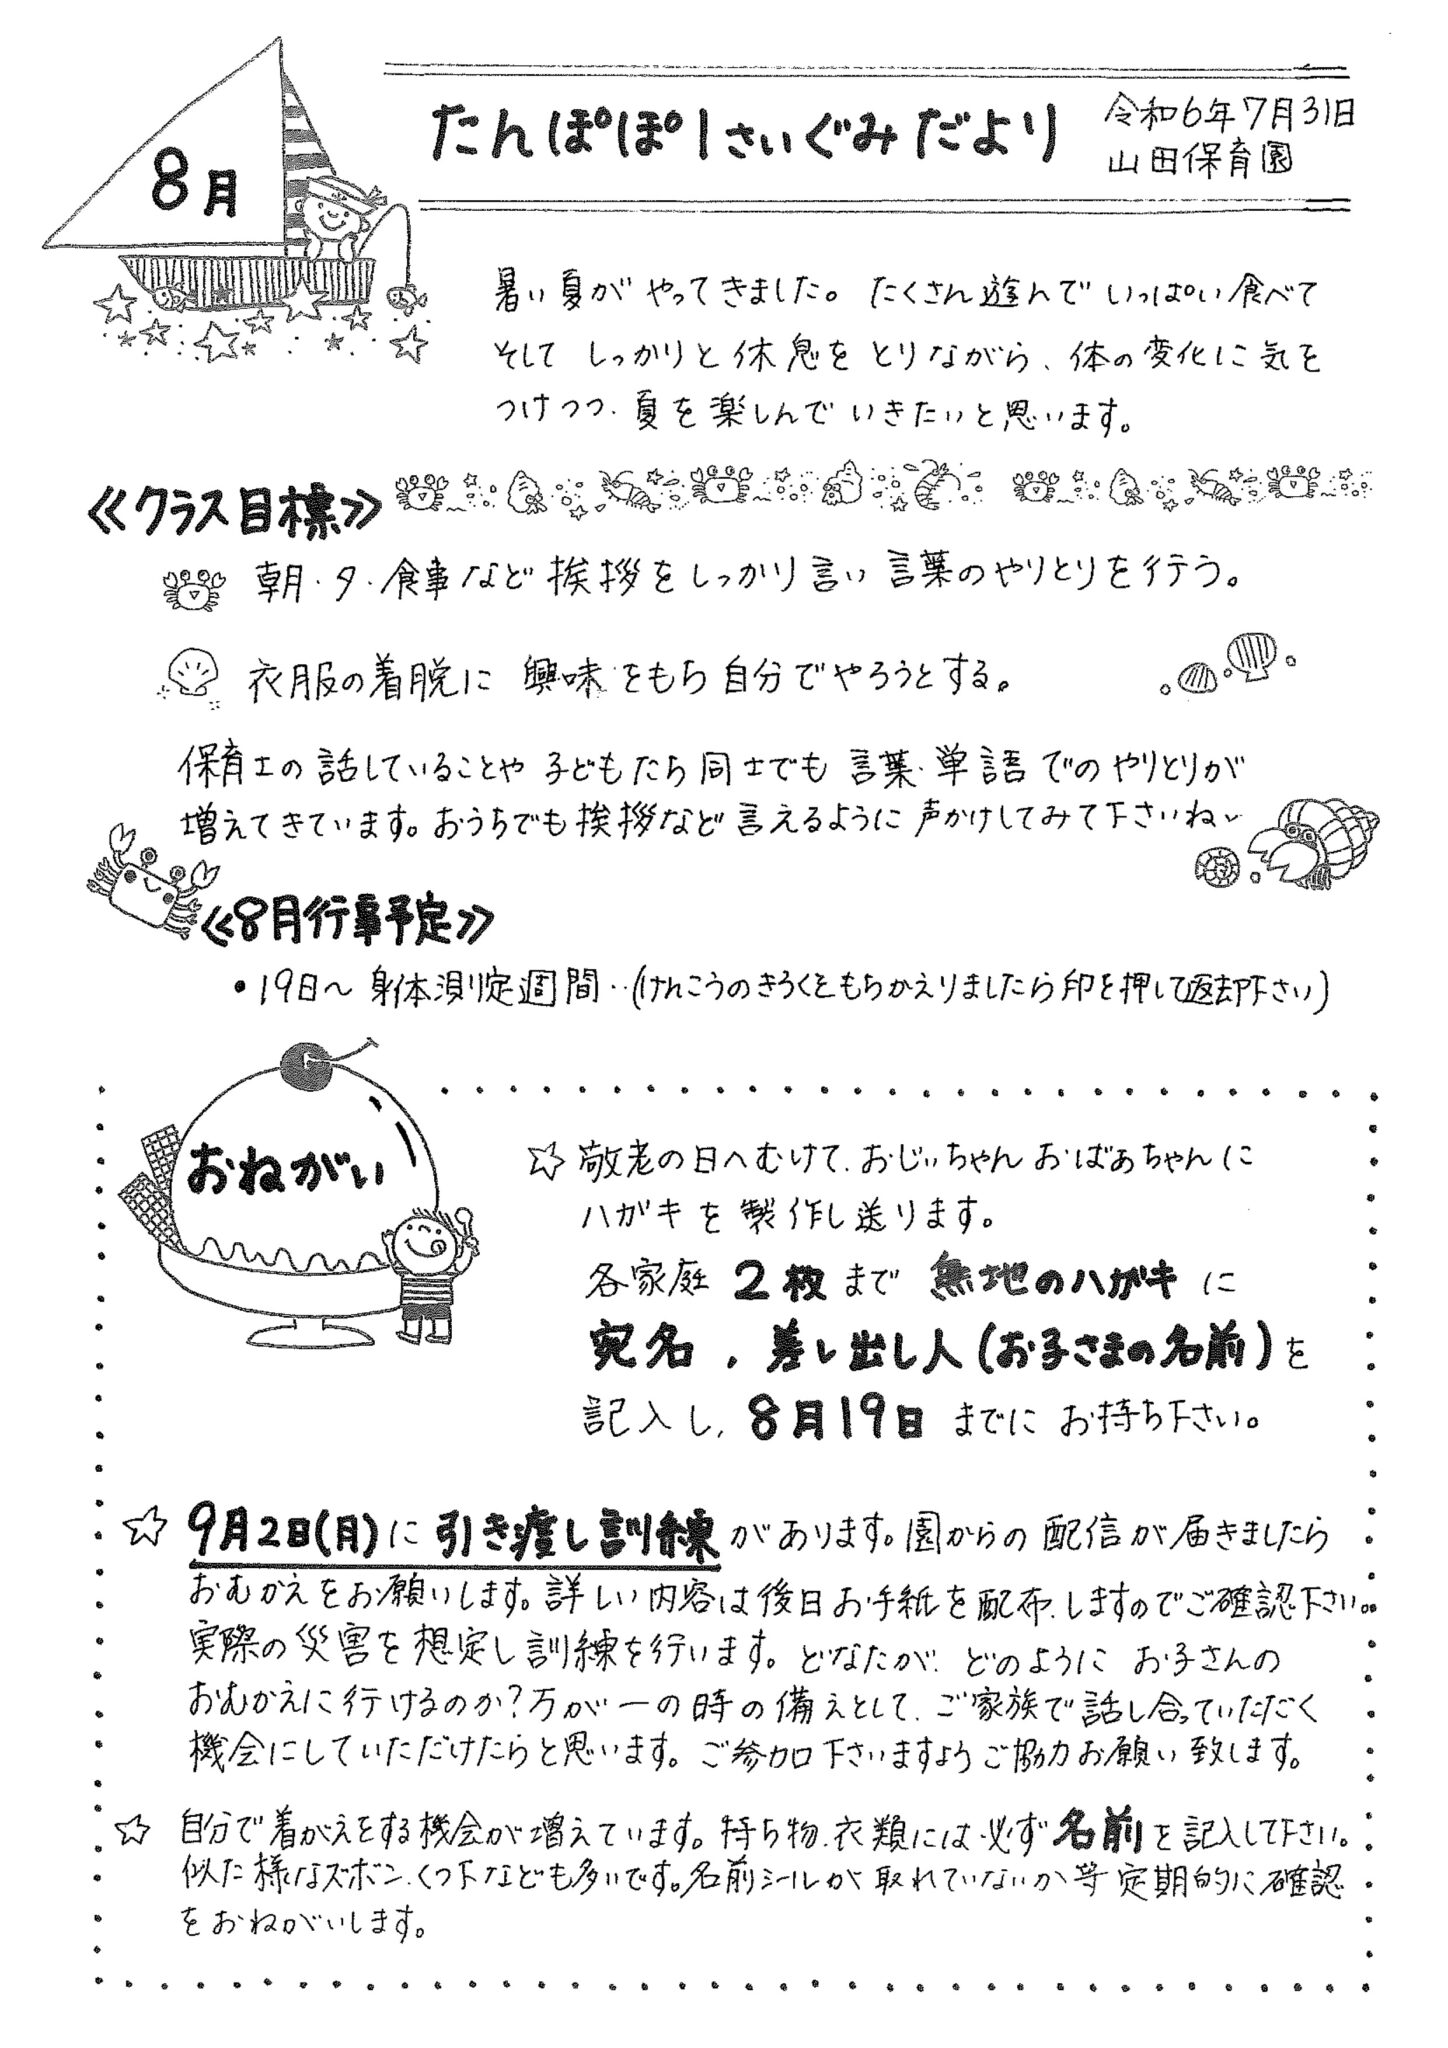 8月
たんぽぽ1さいぐみだより
令和6年7月31日
山田保育園
暑い夏がやってきました。たくさん遊んでいっぱい食べて
そしてしっかりと休息をとりながら、体の変化に気を
つけつつ、夏を楽しんでいきたいと思います。
≪クラス目標≫
朝・夕・食事など挨拶をしっかり言い言葉のやりとりを行う。
衣服の着脱に興味をもち自分でやろうとする。
保育士の話していることや子どもたち同士でも言葉・単語でのやりとりが
増えてきています。おうちでも挨拶など言えるように声かけしてみて下さいね~
≪8月行事予定≫
・19日〜身体測定週間‥(けんこうのきろくをもちかえりましたら印を押して返却下さい)
おねがい
☆敬老の日へむけて、おじぃちゃんおばぁちゃんに
ハガキを製作し送ります。
各家庭2枚まで無地のハガキに
宛名、差し出し人(お子さまの名前)を
記入し、8月19日までにお持ち下さい。
☆9月2日(月)に引き渡し訓練があります。園からの配信が届きましたら
おむかえをお願いします。詳しい内容は後日お手紙を配布しますのでご確認下さい。
実際の災害を想定し訓練を行います。どなたが、どのようにお子さんの
おむかえに行けるのか?万が一の時の備えとして、ご家族で話し合っていただく
機会にしていただけたらと思います。ご参加下さいますようご協力お願い致します。
☆自分で着がえをする機会が増えています。持ち物、衣類には必ず名前を記入して下さい。
似た様なズボン、くつ下なども多いです。名前シールが取れていないか等定期的に確認
をおねがいします。